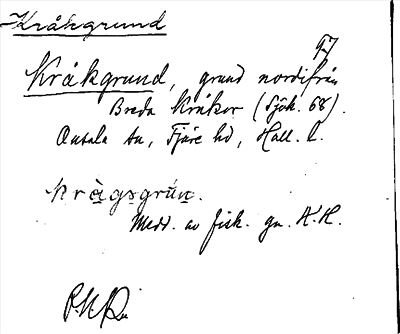 Kråkgrund
97
Kråkgrund, grund nordifrån
Breda Kråkor (Sjök. 68).
Onsala sn, Fjäre hd, Hall. l.
kràgsgrún.
Medd. av fisk. gm. K.H.